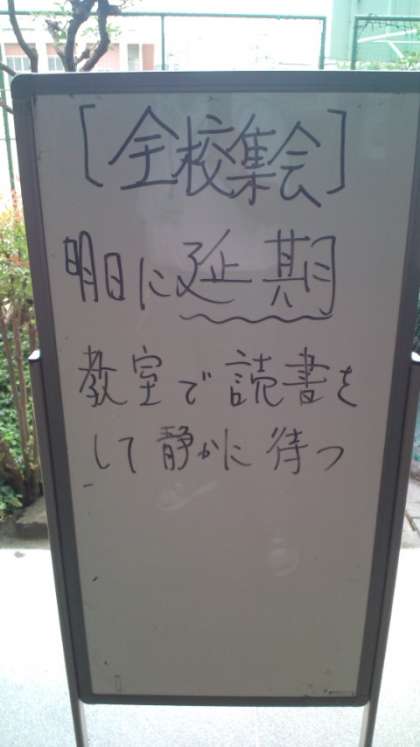 [全校集会]
明日に延期
教室で読書を
して静かに待つ